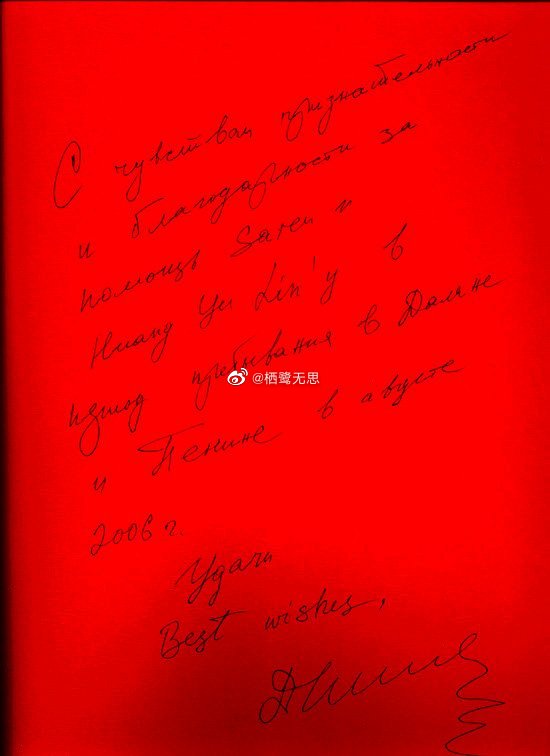 С чувствам признательности
и благодарности за
помощь Saren и
Huang Yu Lin'у в
период пребывания в Даляне
@栖鹭无思
и Пекине в августе
2006 г.
Удачи
Best wishes,